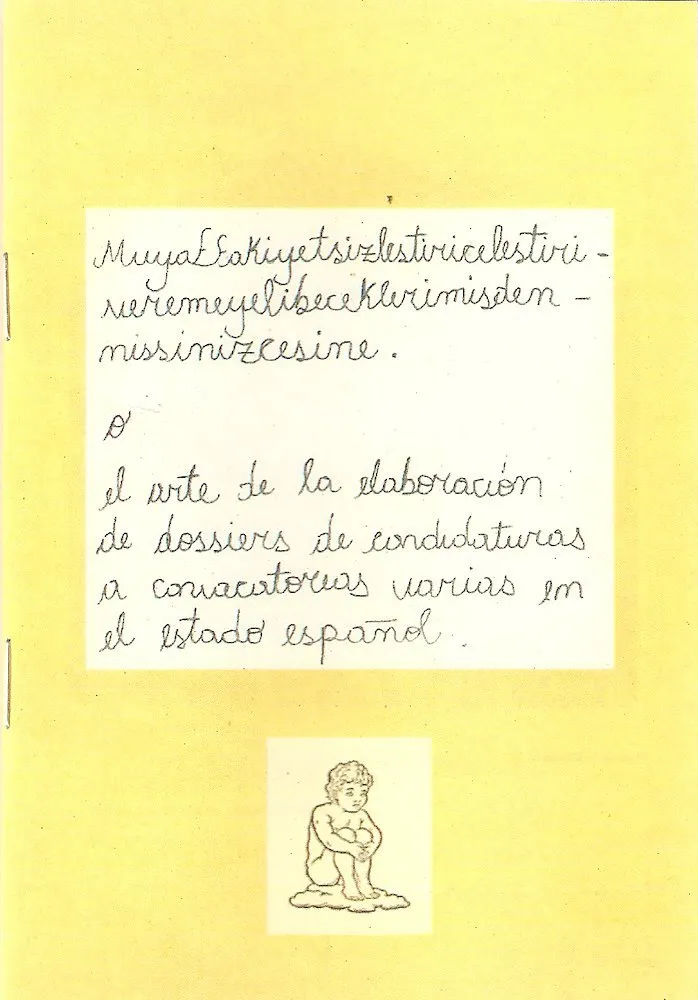 Muyaffakiyetsizlestiricelestiri-
veremeyelibeceklerimisden-
nissinizcesine.
o
el arte de la elaboración
de dossiers de candidaturas
a convocatorias varias en
el estado español.